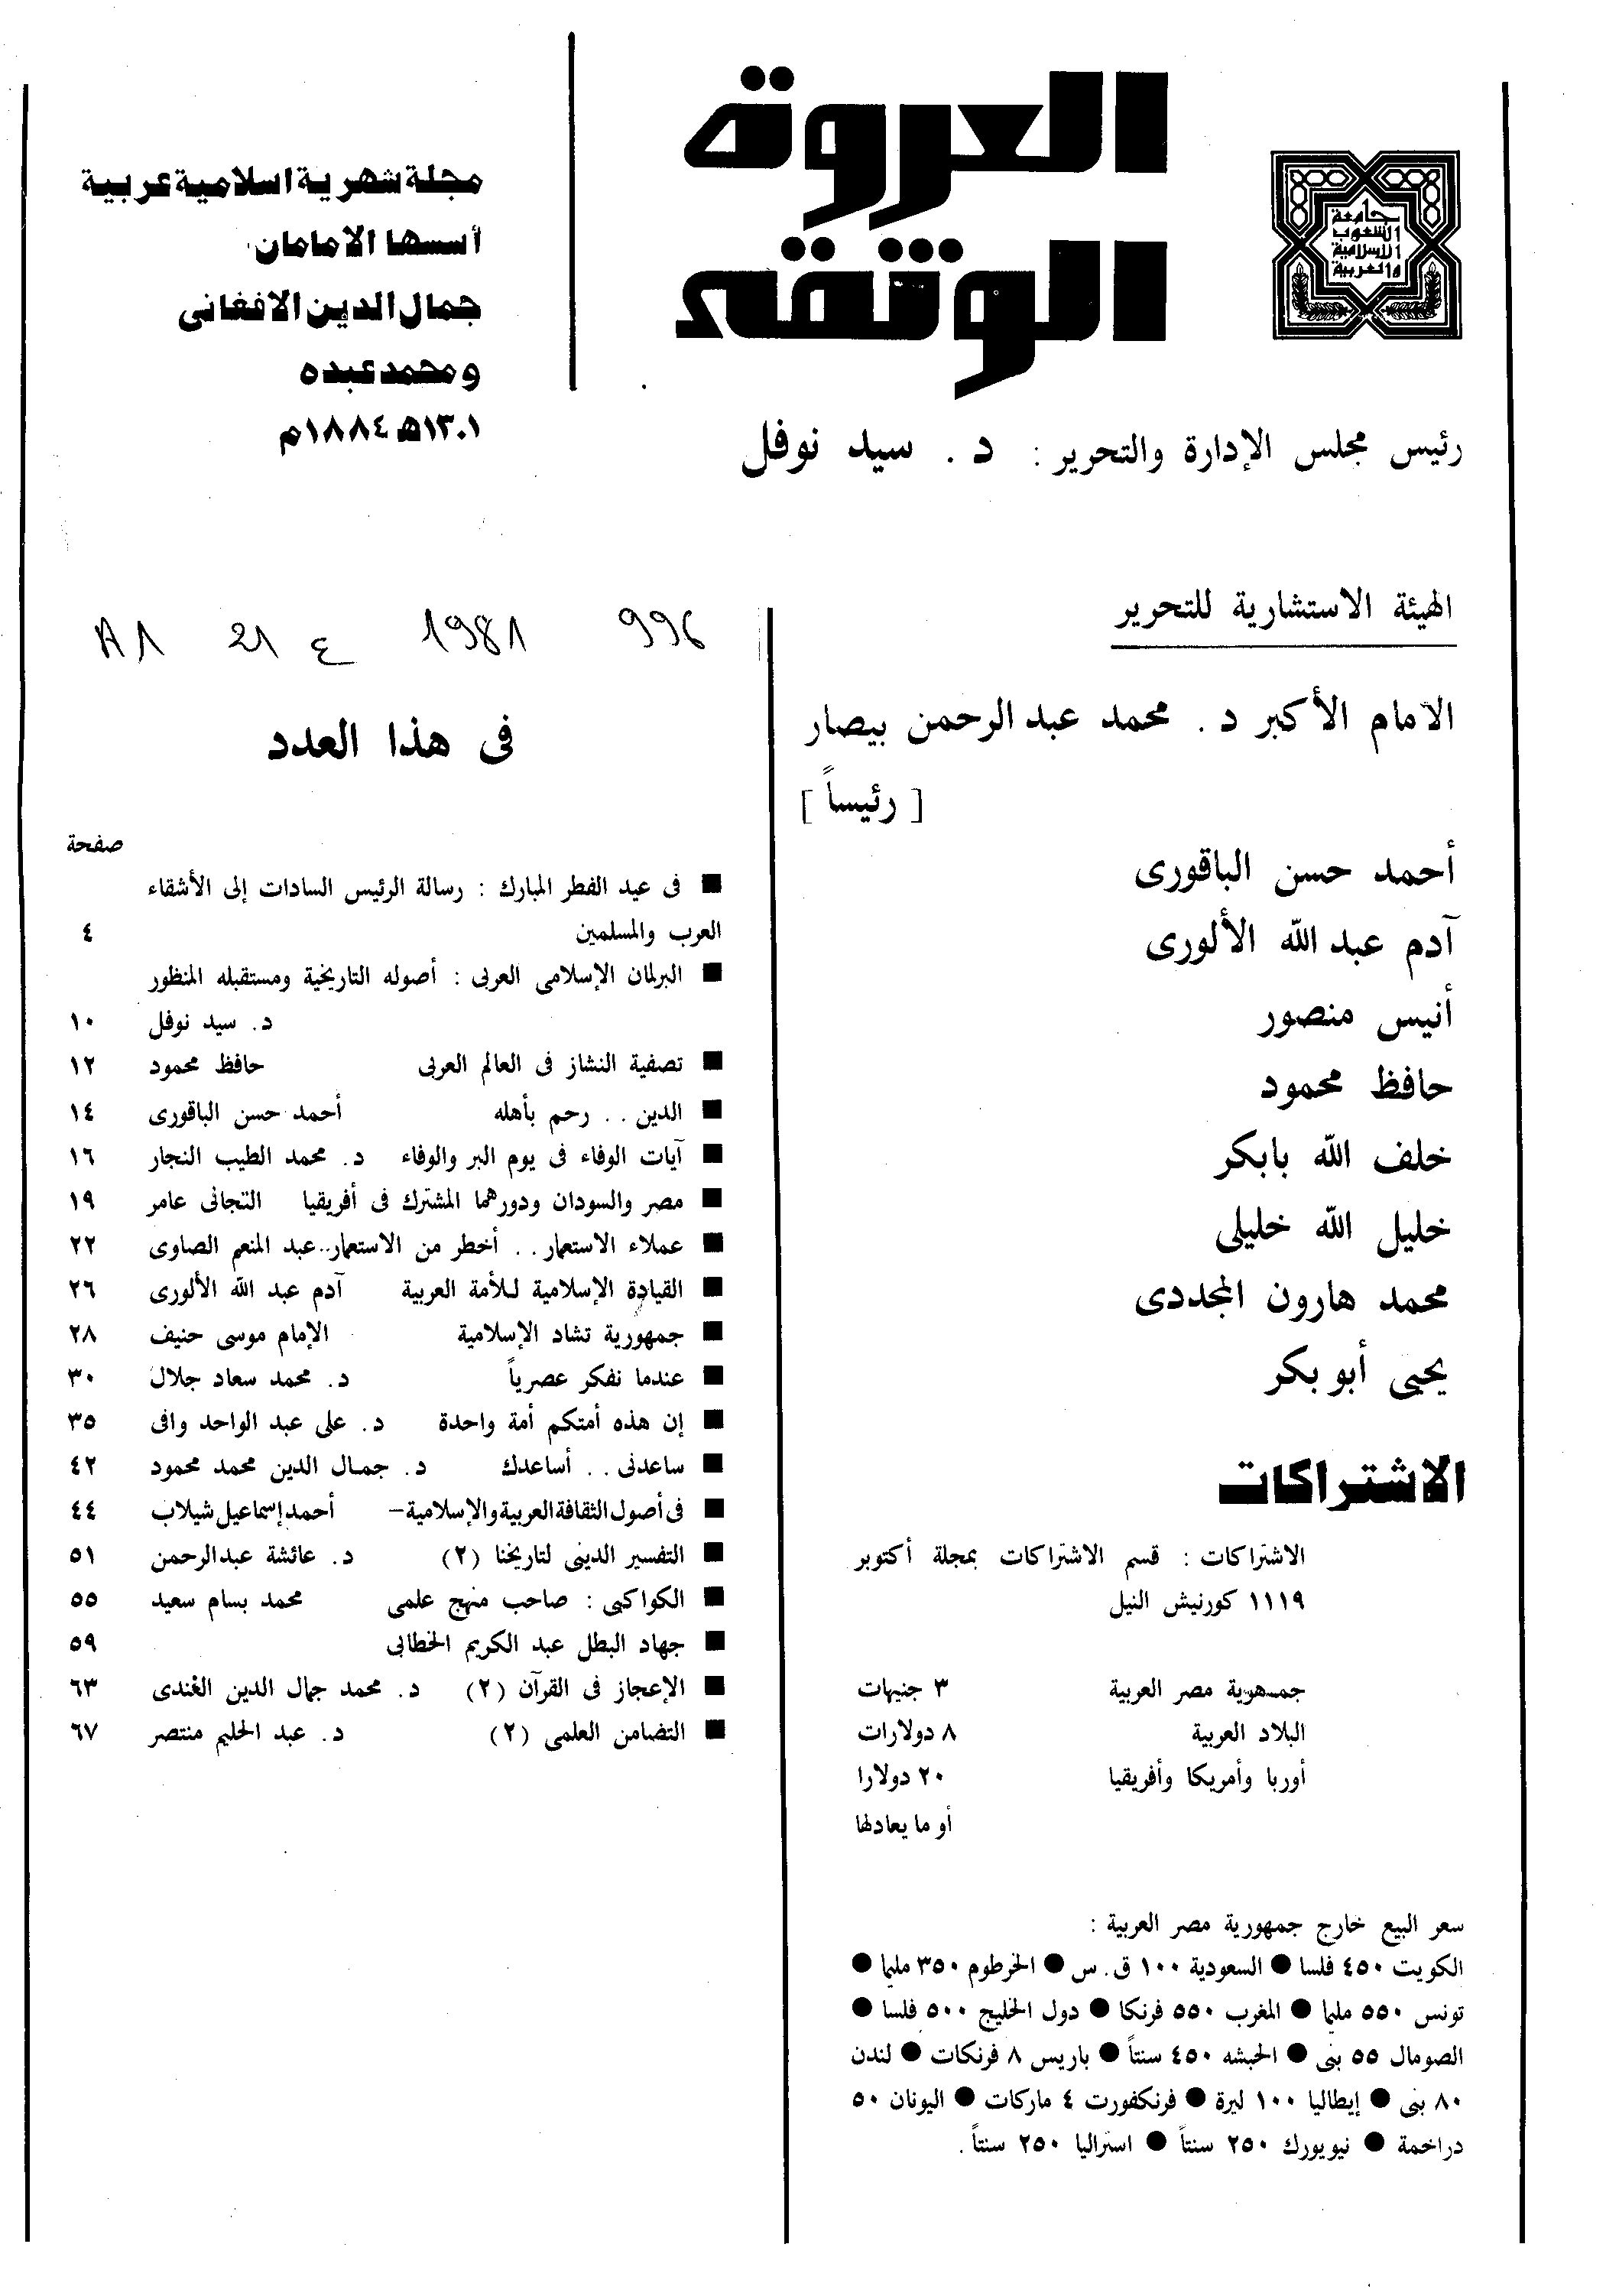 جامعة
الشعوب
الإسلامية
والعربية
العروة
الوثقى
مجلة شهرية اسلامية عربية
أسسها الامامان
جمال الدين الافغانى
ومحمد عبده
١٣٠١هـ ١٨٨٤م
رئيس مجلس الإدارة والتحرير : د . سيد نوفل
الهيئة الاستشارية للتحرير
الامام الأكبر د . محمد عبد الرحمن بيصار
[ رئيساً ]
أحمد حسن الباقورى
آدم عبد الله الألورى
أنيس منصور
حافظ محمود
خلف الله بابكر
خليل الله خليلى
محمد هارون المجددى
يحيى أبو بكر
الاشتراكات
الاشتراكات : قسم الاشتراكات بمجلة أكتوبر
١١١٩ كورنيش النيل
جمهورية مصر العربية ٣ جنيهات
البلاد العربية ٨ دولارات
أوربا وأمريكا وأفريقيا ٢٠ دولارا
أو ما يعادلها
سعر البيع خارج جمهورية مصر العربية :
الكويت ٤٥٠ فلسا ● السعودية ١٠٠ ق . س ● الخرطوم ٣٥٠ مليما ●
تونس ٥٥٠ مليما ● المغرب ٥٥٠ فرنكا ● دول الخليج ٥٠٠ فلسا ●
الصومال ٥٥ بنى ● الحبشه ٤٥٠ سنتاً ● باريس ٨ فرنكات ● لندن
٨٠ بنى ● إيطاليا ١٠٠ ليرة ● فرنكفورت ٤ ماركات ● اليونان ٥٠
دراخمة ● نيويورك ٢٥٠ سنتاً ● استراليا ٢٥٠ سنتاً .
A1 21 ع 1981 996
فى هذا العدد
صفحة
■ فى عيد الفطر المبارك : رسالة الرئيس السادات إلى الأشقاء
العرب والمسلمين ٤
■ البرلمان الإسلامى العربى : أصوله التاريخية ومستقبله المنظور
د. سيد نوفل ١٠
■ تصفية النشاز فى العالم العربى حافظ محمود ١٢
■ الدين . . رحم بأهله أحمد حسن الباقورى ١٤
■ آيات الوفاء فى يوم البر والوفاء د. محمد الطيب النجار ١٦
■ مصر والسودان ودورهما المشترك فى أفريقيا التجانى عامر ١٩
■ عملاء الاستعمار . . أخطر من الاستعمار..عبد المنعم الصاوى ٢٢
■ القيادة الإسلامية للأمة العربية آدم عبد الله الألورى ٢٦
■ جمهورية تشاد الإسلامية الإمام موسى حنيف ٢٨
■ عندما نفكر عصرياً د. محمد سعاد جلال ٣٠
■ إن هذه أمتكم أمة واحدة د. على عبد الواحد وافى ٣٥
■ ساعدنى . . أساعدك د. جمال الدين محمد محمود ٤٢
■ فى أصول الثقافة العربية والإسلامية – أحمد إسماعيل شيلاب ٤٤
■ التفسير الدينى لتاريخنا (٢) د. عائشة عبد الرحمن ٥١
■ الكواكبى : صاحب منهج علمى محمد بسام سعيد ٥٥
■ جهاد البطل عبد الكريم الخطابى ٥٩
■ الإعجاز فى القرآن (٢) د. محمد جمال الدين الفندى ٦٣
■ التضامن العلمى (٢) د. عبد الحليم منتصر ٦٧